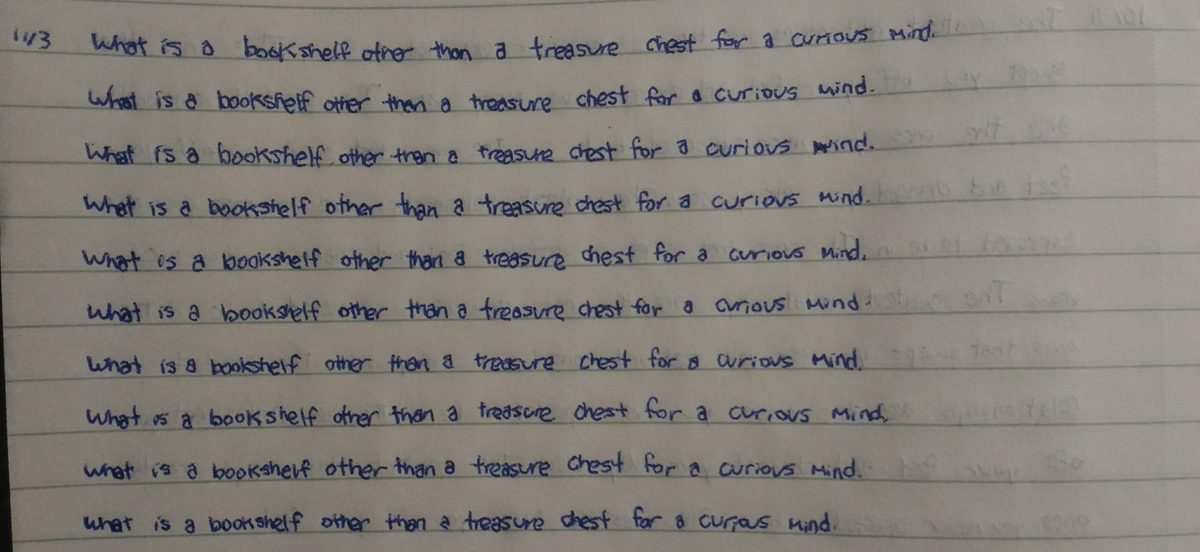 11/3 What is a bookshelf other than a treasure chest for a curious mind.
What is a bookshelf other than a treasure chest for a curious mind.
What is a bookshelf other than a treasure chest for a curious mind.
What is a bookshelf other than a treasure chest for a curious mind.
What is a bookshelf other than a treasure chest for a curious mind.
What is a bookshelf other than a treasure chest for a curious mind.
What is a bookshelf other than a treasure chest for a curious mind.
What is a bookshelf other than a treasure chest for a curious mind.
What is a bookshelf other than a treasure chest for a curious mind.
What is a bookshelf other than a treasure chest for a curious mind.